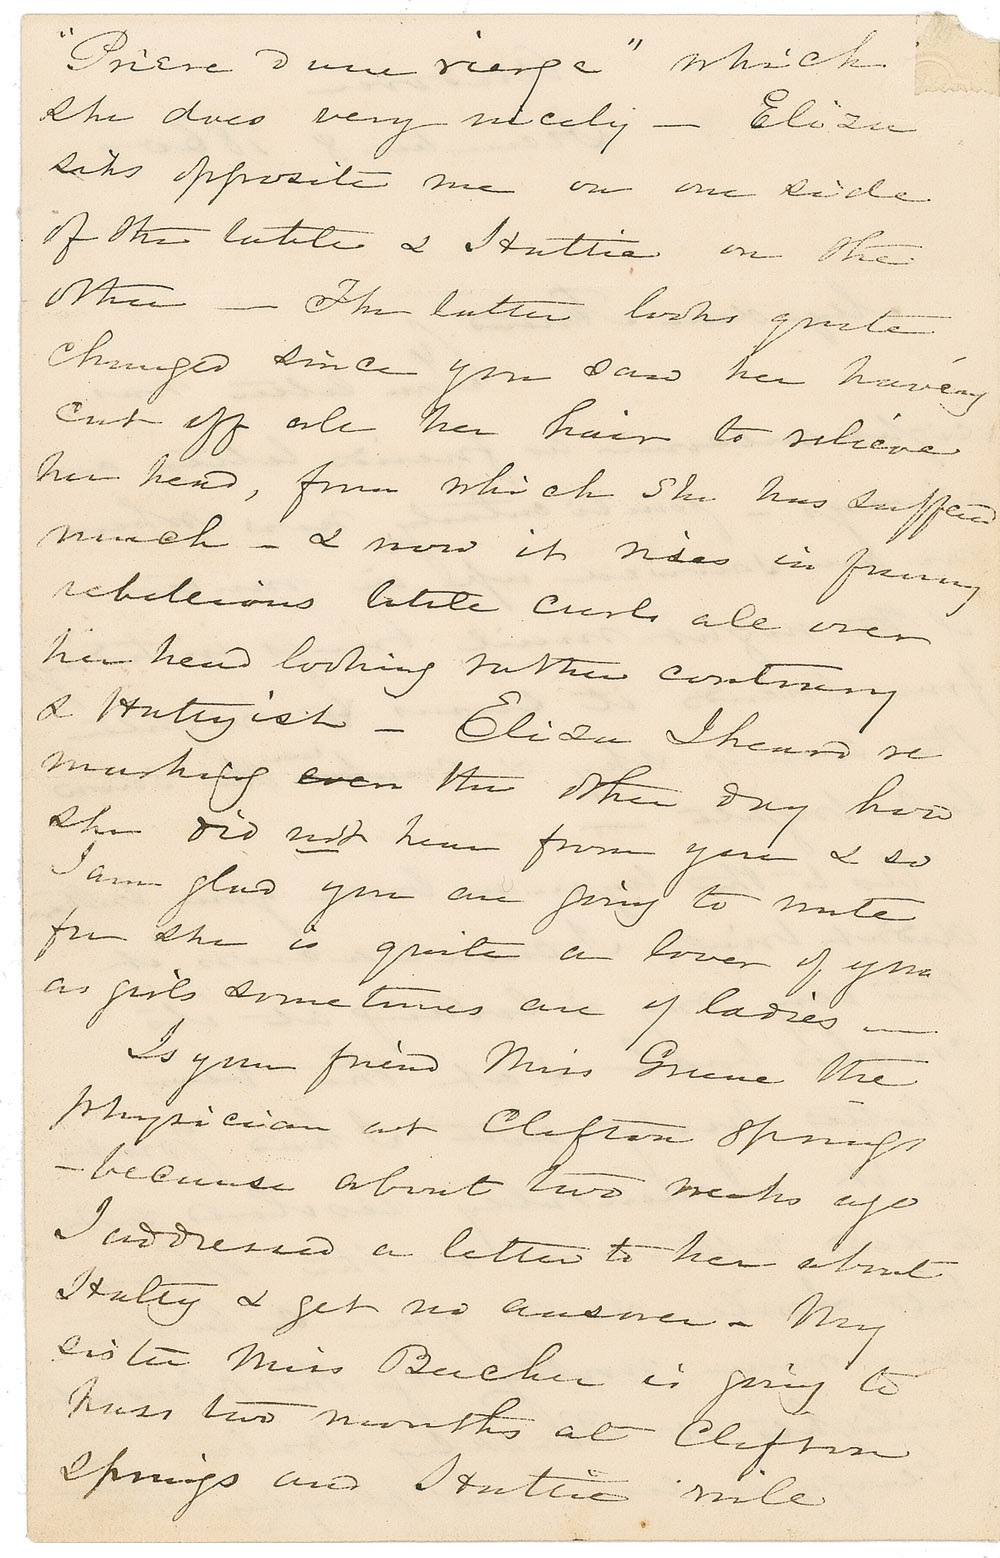 "Priere d une vierge" which
she does very nicely — Eliza
sits opposite me on one side
of the table & Hattie on the
other — The latter looks quite
changed since you saw her having
cut off all her hair to relieve
her head, from which she has suffered
much — & now it rises in funny
rebellious little curls all over
her head looking rather contrary
& Hattyish — Eliza I heard re
marking even the other day how
she did not hear from you & so
I am glad you are going to write
for she is quite a lover of you
as girls sometimes are of ladies —
Is your friend Miss Greene the
physician at Clifton Springs
— because about two weeks ago
I addressed a letter to her about
Hatty & get no answer — My
sister Miss Beecher is going to
pass two months at Clifton
Springs and Hattie will